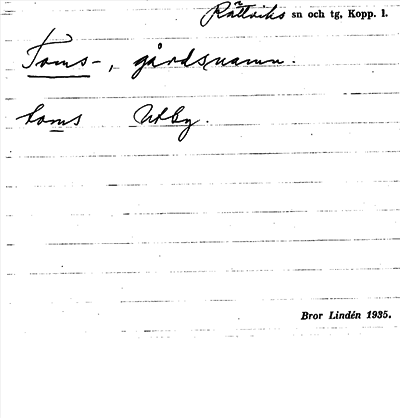 Rättviks sn och tg, Kopp. l.
Toms-, gårdsnamn.
toms Utby.
Bror Lindén 1935.